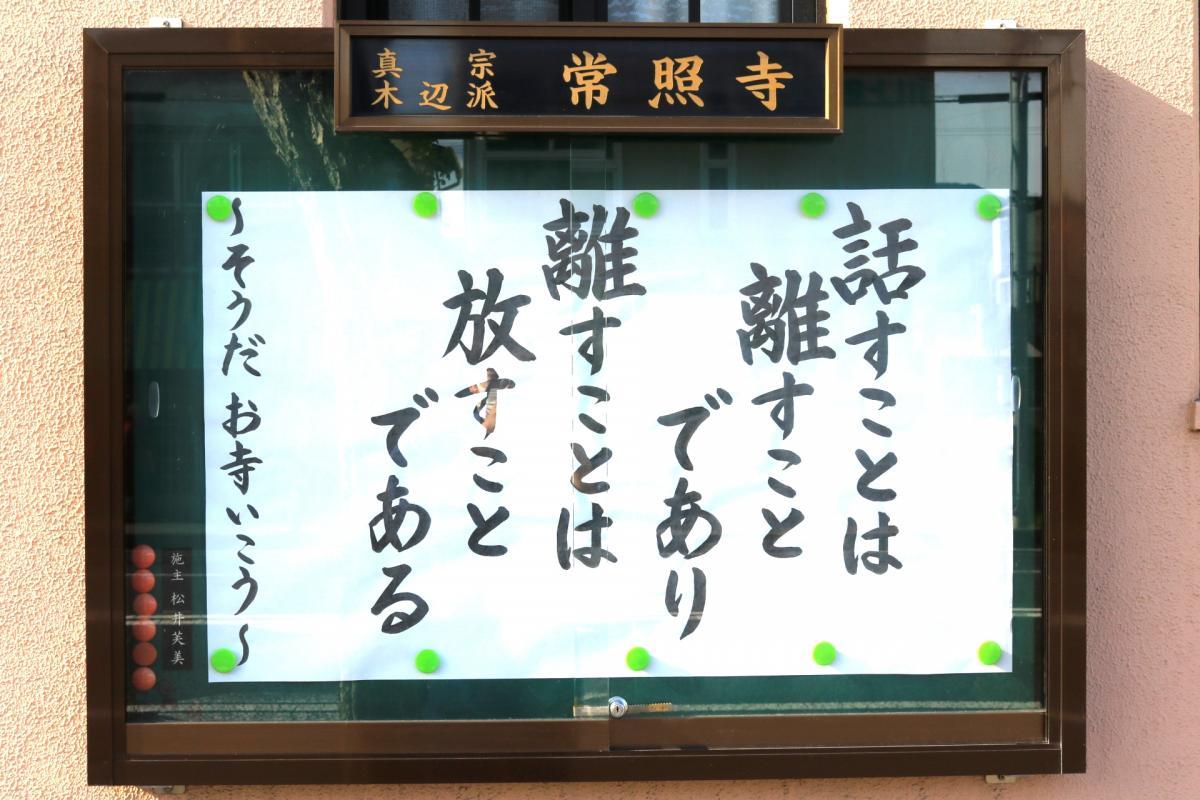 真宗
木辺派
常照寺
話すことは
離すこと
であり
離すことは
放すこと
である
～そうだ お寺いこう～
施主 松井芙美